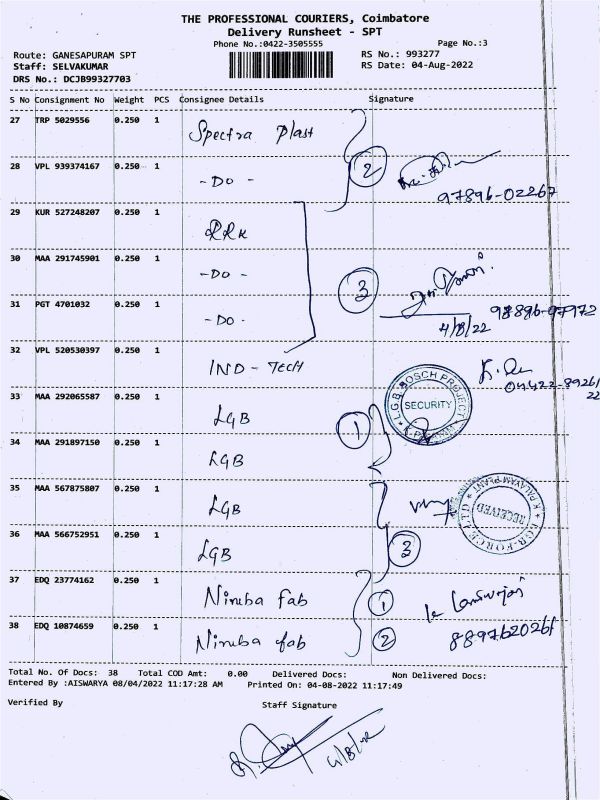 THE PROFESSIONAL COURIERS, Coimbatore
Delivery Runsheet - SPT
Phone No.:0422-3505555 Page No.:3
Route: GANESAPURAM SPT RS No.: 993277
Staff: SELVAKUMAR RS Date: 04-Aug-2022
DRS No.: DCJB99327703
S No Consignment No Weight PCS Consignee Details Signature
27 TRP 5029556 0.250 1 Spectra Plast
28 VPL 939374167 0.250 1 -DO- 2
97896-02267
29 KUR 527248207 0.250 1 RRK
30 MAA 291745901 0.250 1 -DO- 3
31 PGT 4701032 0.250 1 -DO-
4/8/22
32 VPL 520530397 0.250 1 IND-TECH
33 MAA 292065587 0.250 1 LGB 1
L.G.B BOSCH PROJECT
SECURITY
34 MAA 291897150 0.250 1 LGB
35 MAA 567875807 0.250 1 LGB
RECEIVED
36 MAA 566752951 0.250 1 LGB 3
37 EDQ 23774162 0.250 1 Niruba fab 1
38 EDQ 10874659 0.250 1 Niruba fab 2
Total No. Of Docs: 38 Total COD Amt: 0.00 Delivered Docs: Non Delivered Docs:
Entered By :AISWARYA 08/04/2022 11:17:28 AM Printed On: 04-08-2022 11:17:49
Verified By Staff Signature